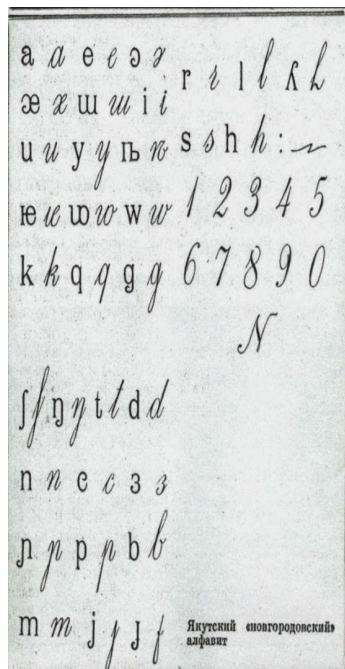 a a e e ə ə
æ æ ɯ ɯ i i
u u y y ꭠ ꭠ
ꭡ ꭡ ꭣ ꭣ w w
k k q q g g
ʃ ʃ ŋ ŋ t t d d
n n ɕ ɕ з з
ɲ ɲ p p b b
m m j j ɟ ɟ
r r l l ʎ ʎ
s s h h : ~
1 2 3 4 5
6 7 8 9 0
N
Якутский «новгородовский»
алфавит